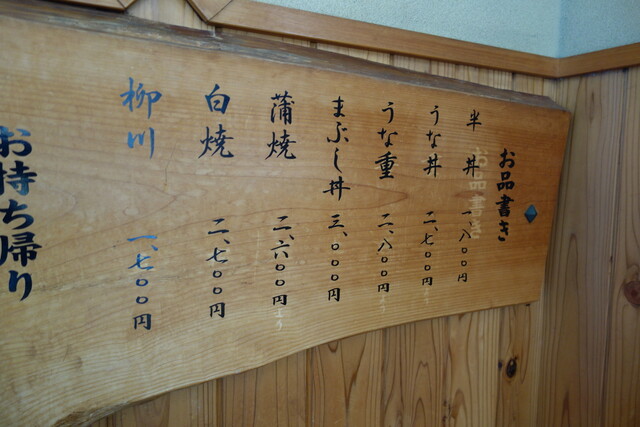 お品書き
半丼 一、八〇〇円
うな丼 二、七〇〇円
うな重 二、八〇〇円
まぶし丼 三、〇〇〇円
蒲焼 二、六〇〇円より
白焼 二、七〇〇円
柳川 一、七〇〇円
お持ち帰り